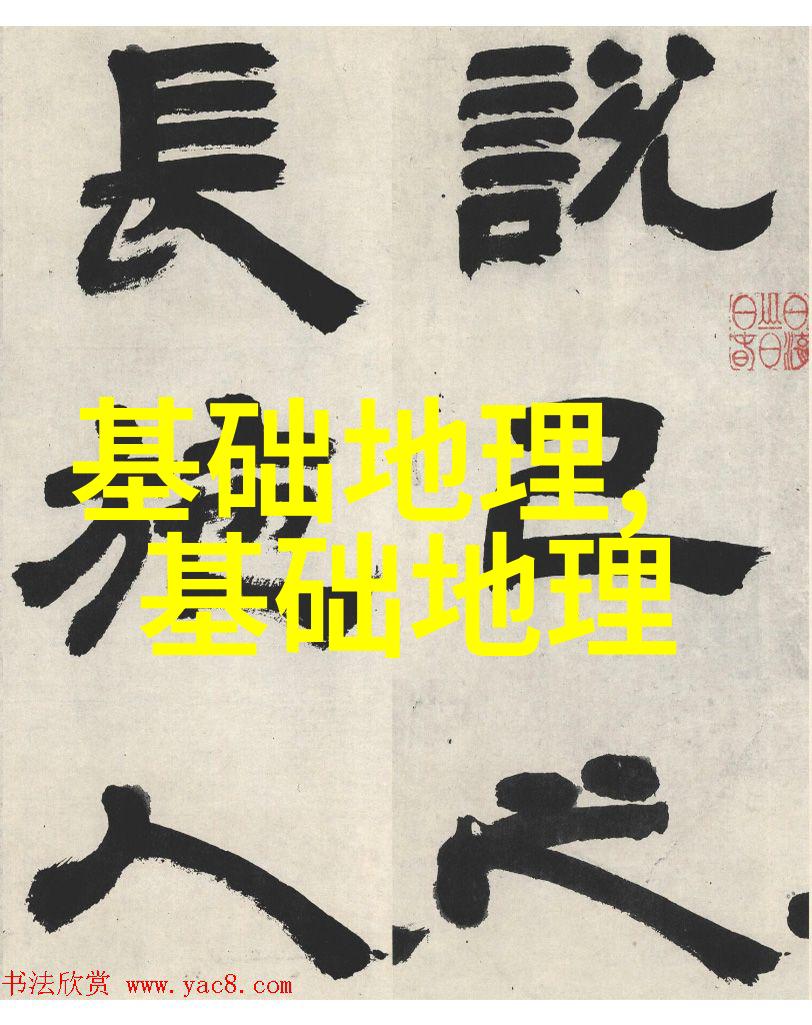 說己之
長施人
基础地理,
基础地理
书法欣赏 www.yac8.com